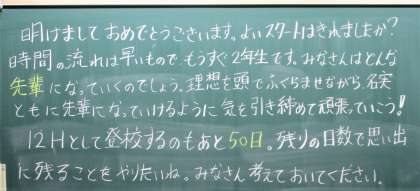 明けましておめでとうございます。よいスタートはきれましたか？
時間の流れは早いもので もうすぐ2年生です。みなさんはどんな
先輩になっていくのでしょう。理想を頭でふくらませながら、名実
ともに先輩になっていけるように気を引き締めて頑張っていこう！
12Hとして登校するのもあと50日。残りの日数で思い出
に残ることをやりたいね。みなさん考えておいてください。